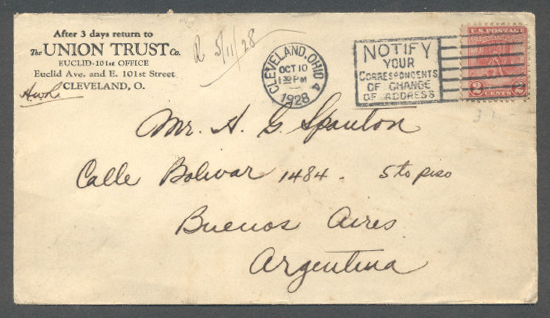 After 3 days return to
The UNION TRUST Co.
EUCLID-101st OFFICE
Euclid Ave. and E. 101st Street
CLEVELAND, O.
R 5/11/28
CLEVELAND, OHIO 4
OCT 10
1928
NOTIFY
YOUR
CORRESPONDENTS
OF CHANGE
OF ADDRESS
U.S. POSTAGE
2 CENTS 2
Mr. A. G. Spanton
Calle Bolivar 1484. 5to piso
Buenos Aires
Argentina